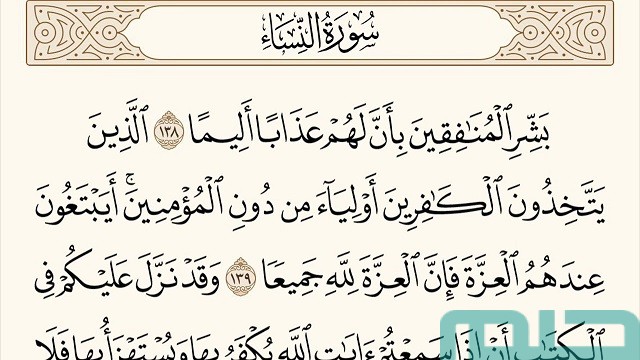 سُورَةُ النِّسَاءِ
بَشِّرِ ٱلْمُنَٰفِقِينَ بِأَنَّ لَهُمْ عَذَابًا أَلِيمًا ١٣٨ ٱلَّذِينَ
يَتَّخِذُونَ ٱلْكَٰفِرِينَ أَوْلِيَآءَ مِن دُونِ ٱلْمُؤْمِنِينَۚ أَيَبْتَغُونَ
عِندَهُمُ ٱلْعِزَّةَ فَإِنَّ ٱلْعِزَّةَ لِلَّهِ جَمِيعًا ١٣٩ وَقَدْ نَزَّلَ عَلَيْكُمْ فِى
ٱلْكِتَٰبِ أَنْ إِذَا سَمِعْتُمْ ءَايَٰتِ ٱللَّهِ يُكْفَرُ بِهَا وَيُسْتَهْزَأُ بِهَا فَلَا